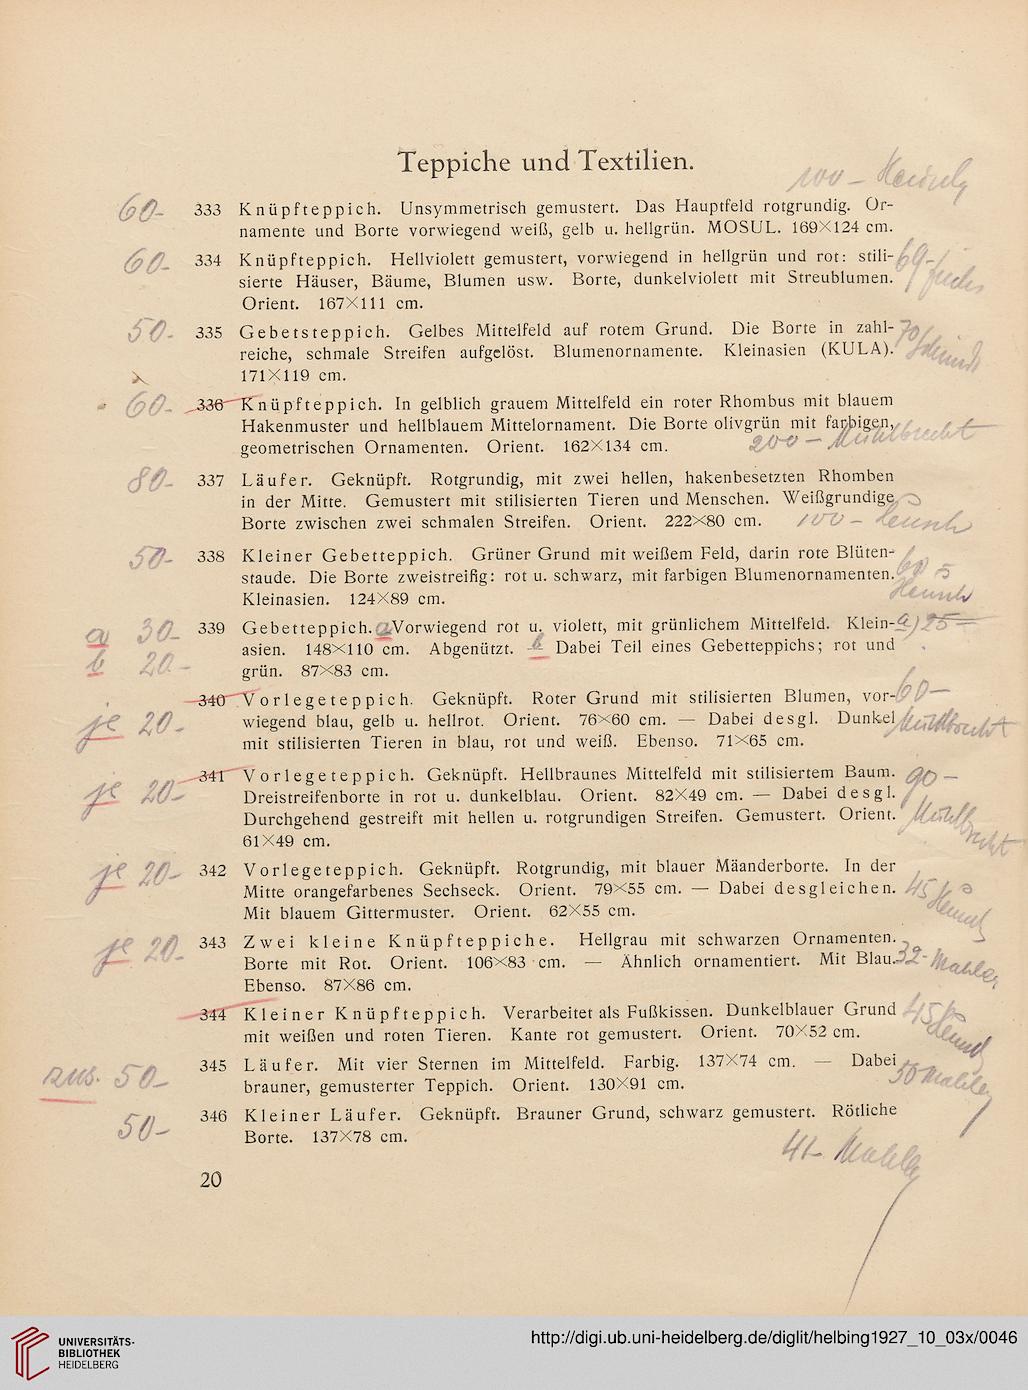 Teppiche und Textilien.
100 –
60.- 333 Knüpfteppich. Unsymmetrisch gemustert. Das Hauptfeld rotgrundig. Or-
namente und Borte vorwiegend weiß, gelb u. hellgrün. MOSUL. 169×124 cm.
60.- 334 Knüpfteppich. Hellviolett gemustert, vorwiegend in hellgrün und rot: stili- 69.-
sierte Häuser, Bäume, Blumen usw. Borte, dunkelviolett mit Streublumen. Fuchs
Orient. 167×111 cm.
50.- 335 Gebetsteppich. Gelbes Mittelfeld auf rotem Grund. Die Borte in zahl- 70
reiche, schmale Streifen aufgelöst. Blumenornamente. Kleinasien (KULA). Schmidt
171×119 cm.
60.- 336 Knüpfteppich. In gelblich grauem Mittelfeld ein roter Rhombus mit blauem
Hakenmuster und hellblauem Mittelornament. Die Borte olivgrün mit farbigen,
geometrischen Ornamenten. Orient. 162×134 cm. 200 – Mühlbrecht
80.- 337 Läufer. Geknüpft. Rotgrundig, mit zwei hellen, hakenbesetzten Rhomben
in der Mitte. Gemustert mit stilisierten Tieren und Menschen. Weißgrundige
Borte zwischen zwei schmalen Streifen. Orient. 222×80 cm. 100 –
50.- 338 Kleiner Gebetteppich. Grüner Grund mit weißem Feld, darin rote Blüten- 60
staude. Die Borte zweistreifig: rot u. schwarz, mit farbigen Blumenornamenten.
Kleinasien. 124×89 cm.
a 30.- 339 Gebetteppich. a Vorwiegend rot u. violett, mit grünlichem Mittelfeld. Klein- a) 25 –
b 20.- asien. 148×110 cm. Abgenützt. – b Dabei Teil eines Gebetteppichs; rot und
grün. 87×83 cm.
340 Vorlegeteppich. Geknüpft. Roter Grund mit stilisierten Blumen, vor- 60 –
je 20.- wiegend blau, gelb u. hellrot. Orient. 76×60 cm. — Dabei desgl. Dunkel Mühlbrecht
mit stilisierten Tieren in blau, rot und weiß. Ebenso. 71×65 cm.
341 Vorlegeteppich. Geknüpft. Hellbraunes Mittelfeld mit stilisiertem Baum. 90 –
je 20.- Dreistreifenborte in rot u. dunkelblau. Orient. 82×49 cm. — Dabei desgl.
Durchgehend gestreift mit hellen u. rotgrundigen Streifen. Gemustert. Orient. Mühlbrecht
61×49 cm.
je 20.- 342 Vorlegeteppich. Geknüpft. Rotgrundig, mit blauer Mäanderborte. In der
Mitte orangefarbenes Sechseck. Orient. 79×55 cm. — Dabei desgleichen. 45
Mit blauem Gittermuster. Orient. 62×55 cm.
je 20.- 343 Zwei kleine Knüpfteppiche. Hellgrau mit schwarzen Ornamenten.
Borte mit Rot. Orient. 106×83 cm. — Ähnlich ornamentiert. Mit Blau. 32- Mahler
Ebenso. 87×86 cm.
344 Kleiner Knüpfteppich. Verarbeitet als Fußkissen. Dunkelblauer Grund 45
mit weißen und roten Tieren. Kante rot gemustert. Orient. 70×52 cm.
zus. 50.- 345 Läufer. Mit vier Sternen im Mittelfeld. Farbig. 137×74 cm. — Dabei
brauner, gemusterter Teppich. Orient. 130×91 cm. 50 Mahler
50.- 346 Kleiner Läufer. Geknüpft. Brauner Grund, schwarz gemustert. Rötliche
Borte. 137×78 cm.
41- Mahler
20
UNIVERSITÄTS-
BIBLIOTHEK
HEIDELBERG
http://digi.ub.uni-heidelberg.de/diglit/helbing1927_10_03x/0046